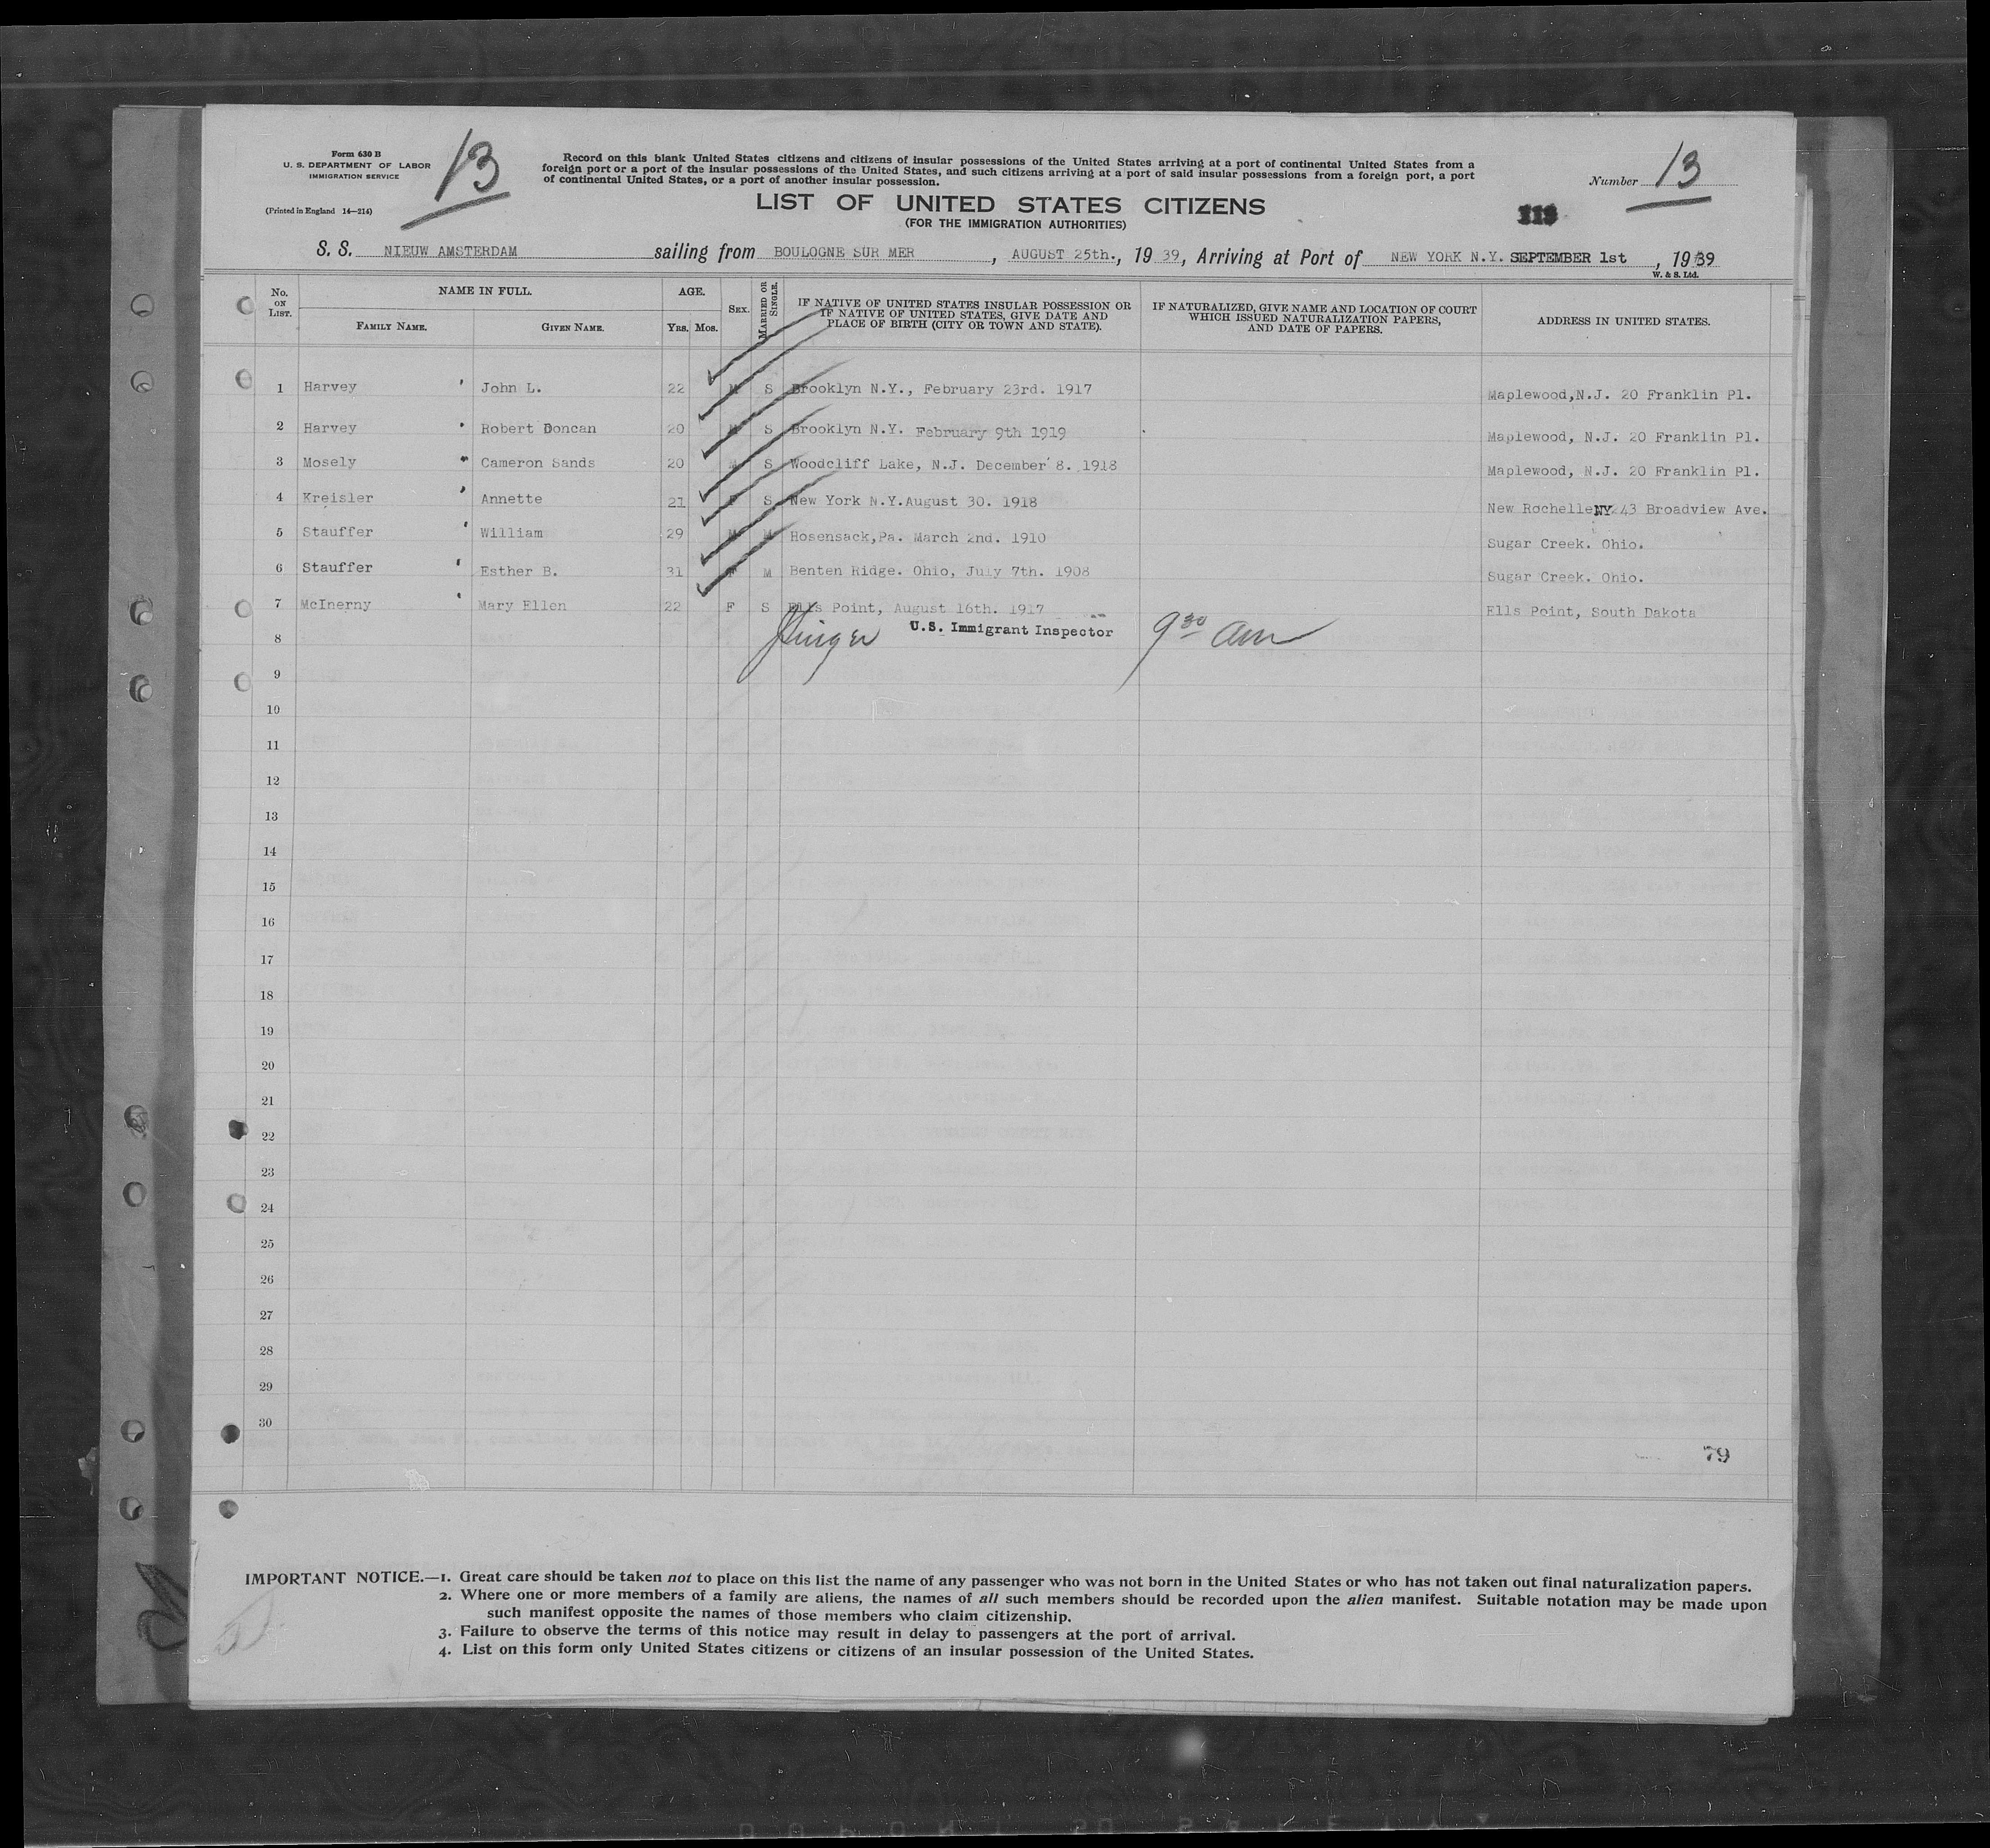 Form 630 B
U. S. DEPARTMENT OF LABOR
IMMIGRATION SERVICE
(Printed in England 14—214)
13
Record on this blank United States citizens and citizens of insular possessions of the United States arriving at a port of continental United States from a
foreign port or a port of the insular possessions of the United States, and such citizens arriving at a port of said insular possessions from a foreign port, a port
of continental United States, or a port of another insular possession.
Number 13
LIST OF UNITED STATES CITIZENS
(FOR THE IMMIGRATION AUTHORITIES)
S. S. NIEUW AMSTERDAM sailing from BOULOGNE SUR MER, AUGUST 25th., 19 39, Arriving at Port of NEW YORK N.Y. SEPTEMBER 1st, 1939
W. & S. Ltd.
No. ON LIST. NAME IN FULL. AGE. SEX. MARRIED OR SINGLE. IF NATIVE OF UNITED STATES INSULAR POSSESSION OR IF NATIVE OF UNITED STATES, GIVE DATE AND PLACE OF BIRTH (CITY OR TOWN AND STATE). IF NATURALIZED, GIVE NAME AND LOCATION OF COURT WHICH ISSUED NATURALIZATION PAPERS, AND DATE OF PAPERS. ADDRESS IN UNITED STATES.
FAMILY NAME. GIVEN NAME. YRS. MOS.
1 Harvey John L. 22 M S Brooklyn N.Y., February 23rd. 1917 Maplewood,N.J. 20 Franklin Pl.
2 Harvey Robert Doncan 20 M S Brooklyn N.Y. February 9th 1919 Maplewood, N.J. 20 Franklin Pl.
3 Mosely Cameron Sands 20 M S Woodcliff Lake, N.J. December 8. 1918 Maplewood, N.J. 20 Franklin Pl.
4 Kreisler Annette 21 F S New York N.Y.August 30. 1918 New Rochelle NY 43 Broadview Ave.
5 Stauffer William 29 M M Hosensack,Pa. March 2nd. 1910 Sugar Creek. Ohio.
6 Stauffer Esther B. 31 F M Benten Ridge. Ohio, July 7th. 1908 Sugar Creek. Ohio.
7 McInerny Mary Ellen 22 F S Ells Point, August 16th. 1917 Ells Point, South Dakota
8 U.S. Immigrant Inspector 9 30 am
9
10
11
12
13
14
15
16
17
18
19
20
21
22
23
24
25
26
27
28
29
30
79
IMPORTANT NOTICE.—1. Great care should be taken not to place on this list the name of any passenger who was not born in the United States or who has not taken out final naturalization papers.
2. Where one or more members of a family are aliens, the names of all such members should be recorded upon the alien manifest. Suitable notation may be made upon
such manifest opposite the names of those members who claim citizenship.
3. Failure to observe the terms of this notice may result in delay to passengers at the port of arrival.
4. List on this form only United States citizens or citizens of an insular possession of the United States.